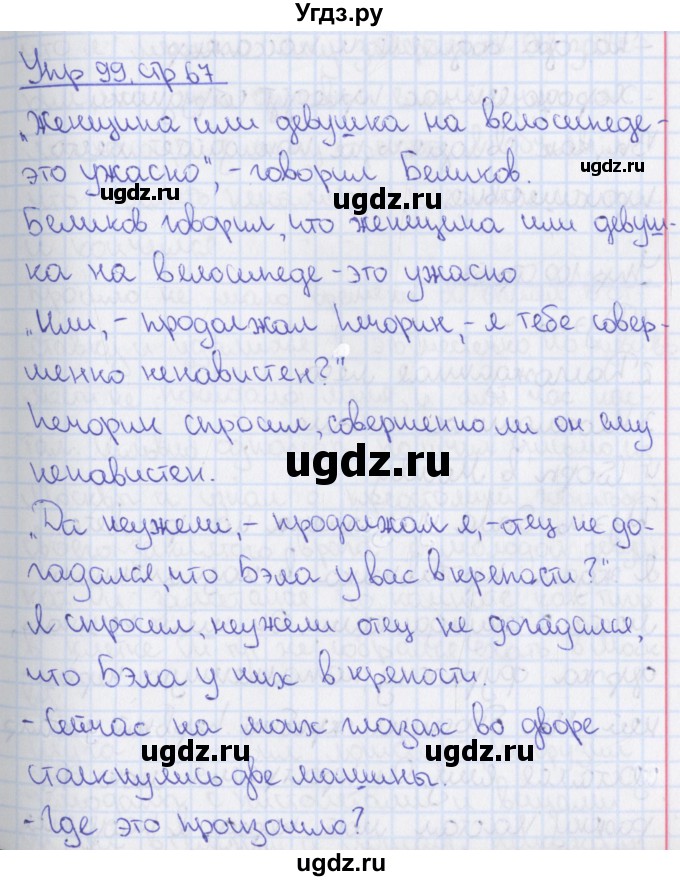 Угдз.ру
Упр 99, стр 67
„Женщина или девушка на велосипеде-
это ужасно", - говорил Беликов.
ugdz.ru
ugdz.ru
Беликов говорил, что женщина или девуш-
ка на велосипеде - это ужасно
„Или, - продолжал Печорин, - я тебе совер-
ugdz.ru
ugdz.ru
шенно ненавистен?"
Печорин спросил, совершенно ли он ему
ugdz.ru
ненавистен.
„Да неужели, - продолжал я, - отец не до-
ugdz.ru
ugdz.ru
гадался, что Бэла у вас в крепости?"
Я спросил, неужели отец не догадался,
что Бэла у них в крепости.
- Сейчас на моих глазах во дворе
ugdz.ru
ugdz.ru
столкнулись две машины.
- Где это произошло?
ugdz.ru